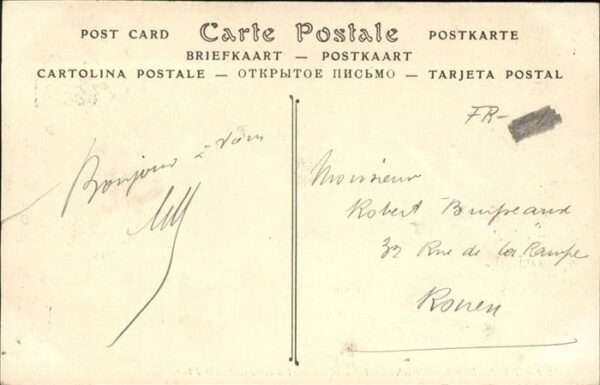 POST CARD Carte Postale POSTKARTE
BRIEFKAART — POSTKAART
CARTOLINA POSTALE — ОТКРЫТОЕ ПИСЬМО — TARJETA POSTAL
FR-
Bonjour à vous
Monsieur
Robert
32 Rue de la Rampe
Rouen